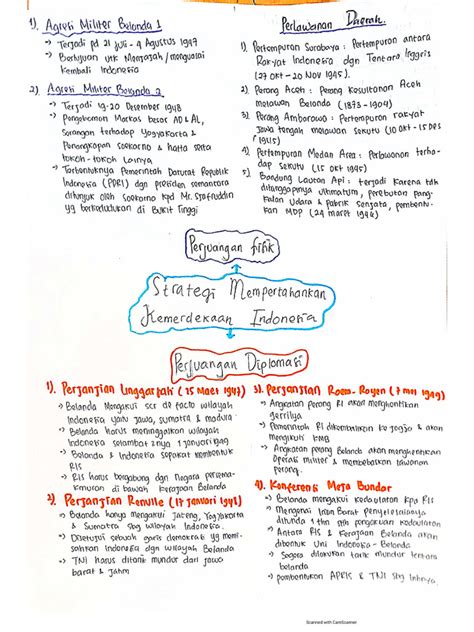 1). Agresi Militer Belanda 1
→ Terjadi pd 21 juli - 4 Agustus 1947
→ Bertujuan utk Menjajah / menguasai
kembali Indonesia
2) Agresi Militer Belanda 2
→ Terjadi 19-20 Desember 1948
→ Pengeboman Markas besar AD & AL,
Serangan terhadap Yogyakarta &
Penangkapan Soekarno & hatta serta
tokoh-tokoh lainnya
→ Terbentuknya Pemerintah Darurat Republik
Indonesia (PDRI) dgn presiden semantara
ditunjuk oleh Soekarno kpd Mr. Syafruddin
yg berkedudukan di Bukit Tinggi
Perlawanan Daerah.
1) Pertempuran Surabaya : Pertempuran antara
Rakyat Indonesia dgn Tentara Inggris
(27 okt - 20 NOV 1945).
2) Perang Aceh : Perang Kesultanan Aceh
melawan Belanda (1873-1904)
3) Perang Ambarawa : Pertempuran rakyat
Jawa tengah melawan sekutu (20 Okt - 15 Des
1945)
4) Pertempuran Medan Area : Perlawanan terha-
dap Sekutu (15 okt 1945)
5) Bandung Lautan Api : terjadi karena tdh
ditanggapinya ultimatum, perebutan pang-
kalan Udara & pabrik Senjata, pembentu-
kan MDP (24 maret 1946)
Perjuangan fifik
Strategi Mempertahankan
Kemerdekaan Indonesia
Perjuangan Diplomasi
1). Perjanjian Linggarjati (15 Maret 1947)
→ Belanda Mengakui scr de facto wilayah
Indonesia yaitu Jawa, sumatra & madura
→ Belanda harus meninggalkan wilayah
Indonesia selambat²nya 1 januari 1949
→ Belanda & Indonesia sepakat membentuk
RIS
→ RIS harus bergabung dgn Negara persema-
kmuran di bawah kerajaan Belanda
2) Perjanjian Renville (17 januari 1948)
→ Belanda hanya mengakui Jateng, Yogyakarta
& Sumatra sbg wilayah Indonesia.
→ Disetujui sebuah garis demokrasi yg memi-
sahkan Indonesia dgn wilayah Belanda
→ TNI harus ditarik mundur dari jawa
barat & Jatim
3). Perjanjian Roem-Royen (7 mei 1949)
→ Angkatan perang RI akan menghentikan
gerrilya
→ Pemerintah RI dikembalikan ke jogja & akan
mengikuti KMB
→ Angkatan perang Belanda akan menghentikan
Operasi militer & membebaskan tawanan
perang.
4). Konferensi Meja Bundar
→ Belanda mengakui kedaulatan kpd RIS
→ Mengenai Irian Barat penyelesaiannya
ditunda 1 thn stlh pengakuan kedaulatan
→ Antara RIS & Kerajaan Belanda akan
dibentuk Uni Indonesia - Belanda
→ Segera dilakukan tarik mundur tentara
belanda
→ Pembentukan APRIS & TNI sbg Intinya.
Scanned with CamScanner